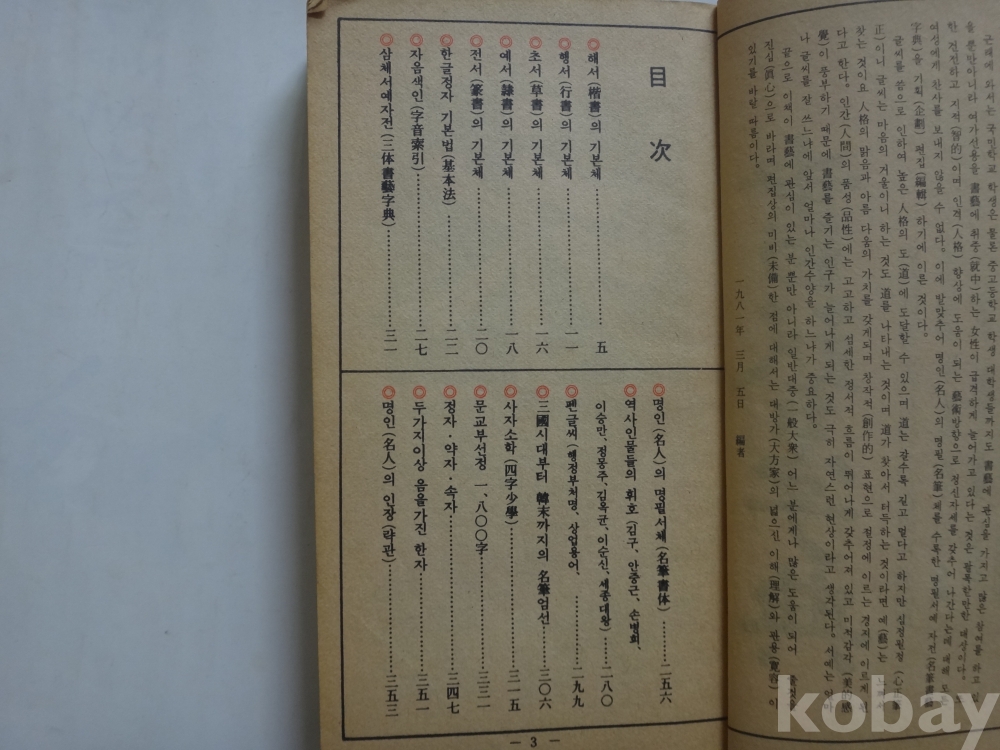 근래에 와서는 국민학교 학생은 물론 중고등학교 학생 대학생들까지도 書藝에 관심을 가지고
을 뿐만아니라 여가선용을 書藝에 취중(就中)하는 女性이 급격하게 늘어가고 있다는 것은
한 건전하고 지적(智的)이며 인격(人格) 향상에 도움이 되는 藝術방향으로 정신자세를 갖추어
여성에게 찬사를 보내지 않을 수 없다. 이에 발맞추어 명인(名人)의 명필(名筆)체를 수록한 명필서체
字典)을 기획(企劃) 편집(編輯) 하기에 이른 것이다.
글씨를 씀으로 인하여 높은 人格의 도(道)에 도달할 수 있으며 道는 갈수록 깊고 멀다고 하지만 심정필정(心正筆
正)이니 글씨는 마음의 거울이니 하는 것도 道를 나타내는 것이며 道가 찾아서 터득하는 것이라면 예(藝)는
찾는 것이요 人格의 맑음과 아름 다움의 가치를 갖게되며 창작적(創作的) 표현으로 절정에 이르는 경지에 이르게
다고 한다. 인간(人間)의 품성(品性)에는 고고하고 섬세한 정서적 흐름이 뛰어나게 갖추어져 있고 미적감각(美的感
覺)이 풍부하기 때문에 書藝를 즐기는 인구가 늘어나게 되는 것도 극히 자연스런 현상이라고 생각된다. 서예는
나 글씨를 잘 쓰느냐에 앞서 얼마나 인간수양을 하느냐가 중요하다.
끝으로 이책이 書藝에 관심이 있는 분 뿐만 아니라 일반대중(一般大衆) 어느 분에게나 많은 도움이 되어
진심(眞心)으로 바라며 편집상의 미비(未備)한 점에 대해서는 대방가(大方家)의 넓으신 이해(理解)와 관용(寬容)이
있기를 바랄 따름이다.
一九八一年 三月 五日 編者
目次
◎해서(楷書)의 기본체………五
◎행서(行書)의 기본체………一一
◎초서(草書)의 기본체………一六
◎예서(隷書)의 기본체………一八
◎전서(篆書)의 기본체………二○
◎한글정자 기본법(基本法)………二二
◎자음색인(字音索引)………二七
◎삼체서예자전(三体書藝字典)………三一
◎명인(名人)의 명필서체(名筆書体)………二五六
◎역사인물들의 휘호(김구、안중근、손병희、
이승만、정몽주、김옥균、이순신、세종대왕)………二八○
◎펜글씨(행정부처명、상업용어、………二九九
◎三國시대부터 韓末까지의 名筆엄선………三○六
◎사자소학(四字少學)………三一五
◎문교부선정 一、八○○字………三三一
◎정자・약자・속자………三四七
◎두가지이상 음을가진 한자………三五一
◎명인(名人)의 인장(락관)………三五三
— 3 —
kobay